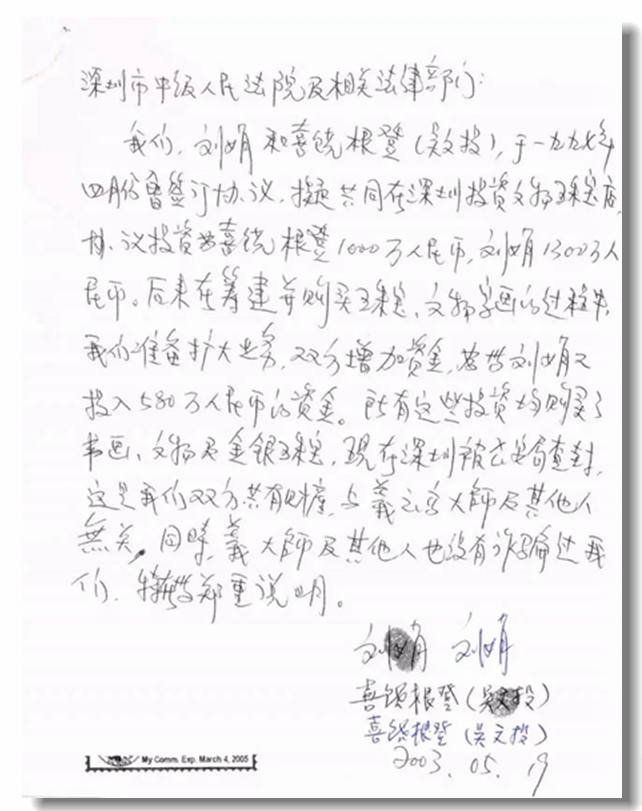 深圳市中级人民法院及相关法律部门:
我们,刘娟和喜饶根登(吴文投),于一九九七年
四月份曾签订协议,拟定共同在深圳投资文物玉器店,
协议投资为喜饶根登1000万人民币,刘娟1300万人
民币。后来在筹建并购买玉器、文物字画的过程中,
我们准备扩大业务,双方增加资金,刘娟又
投入580万人民币的资金。所有这些投资均购买了
书画、文物及金银玉器,现在深圳被公安局查封,
这是我们双方共有财产,与義云高大師及其他人
無关。同時,義大師及其他人也没有诈骗过我
们,特此郑重说明。
刘娟 刘娟
喜饶根登(吴文投)
喜饶根登(吴文投)
2003.05.19
My Comm. Exp. March 4, 2005